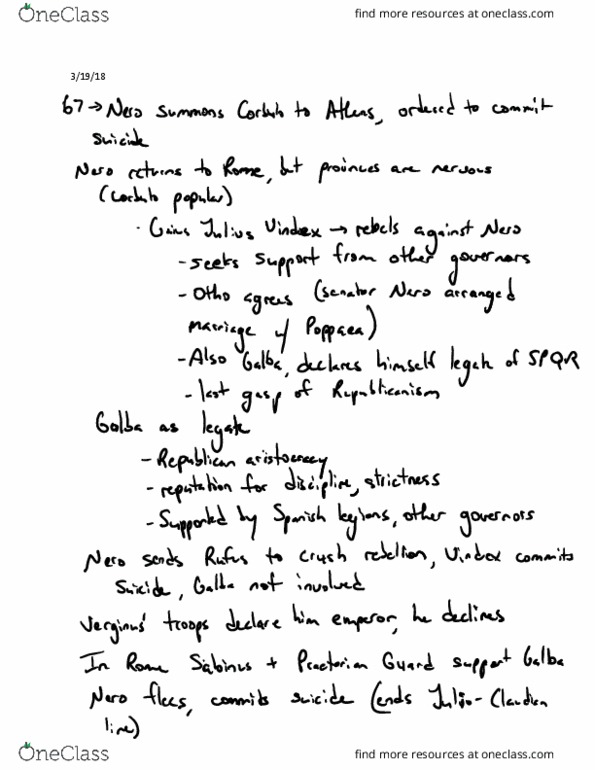 OneClass
find more resources at oneclass.com
3/19/18
67 → Nero summons Corbulo to Athens, ordered to commit
suicide
Nero returns to Rome, but provinces are nervous
(Corbulo popular)
· Gaius Julius Vindex → rebels against Nero
- seeks support from other governors
- Otho agrees (senator Nero arranged
marriage w/ Poppaea)
- Also Galba, declares himself legate of SPQR
- last gasp of Republicanism
Galba as legate
- Republican aristocracy
- reputation for discipline, strictness
- Supported by Spanish legions, other governors
Nero sends Rufus to crush rebellion, Vindex commits
suicide, Galba not involved
Verginus' troops declare him emperor, he declines
In Rome Sabinus + Praetorian Guard support Galba
Nero flees, commits suicide (ends Julio-Claudian
line)
OneClass
find more resources at oneclass.com